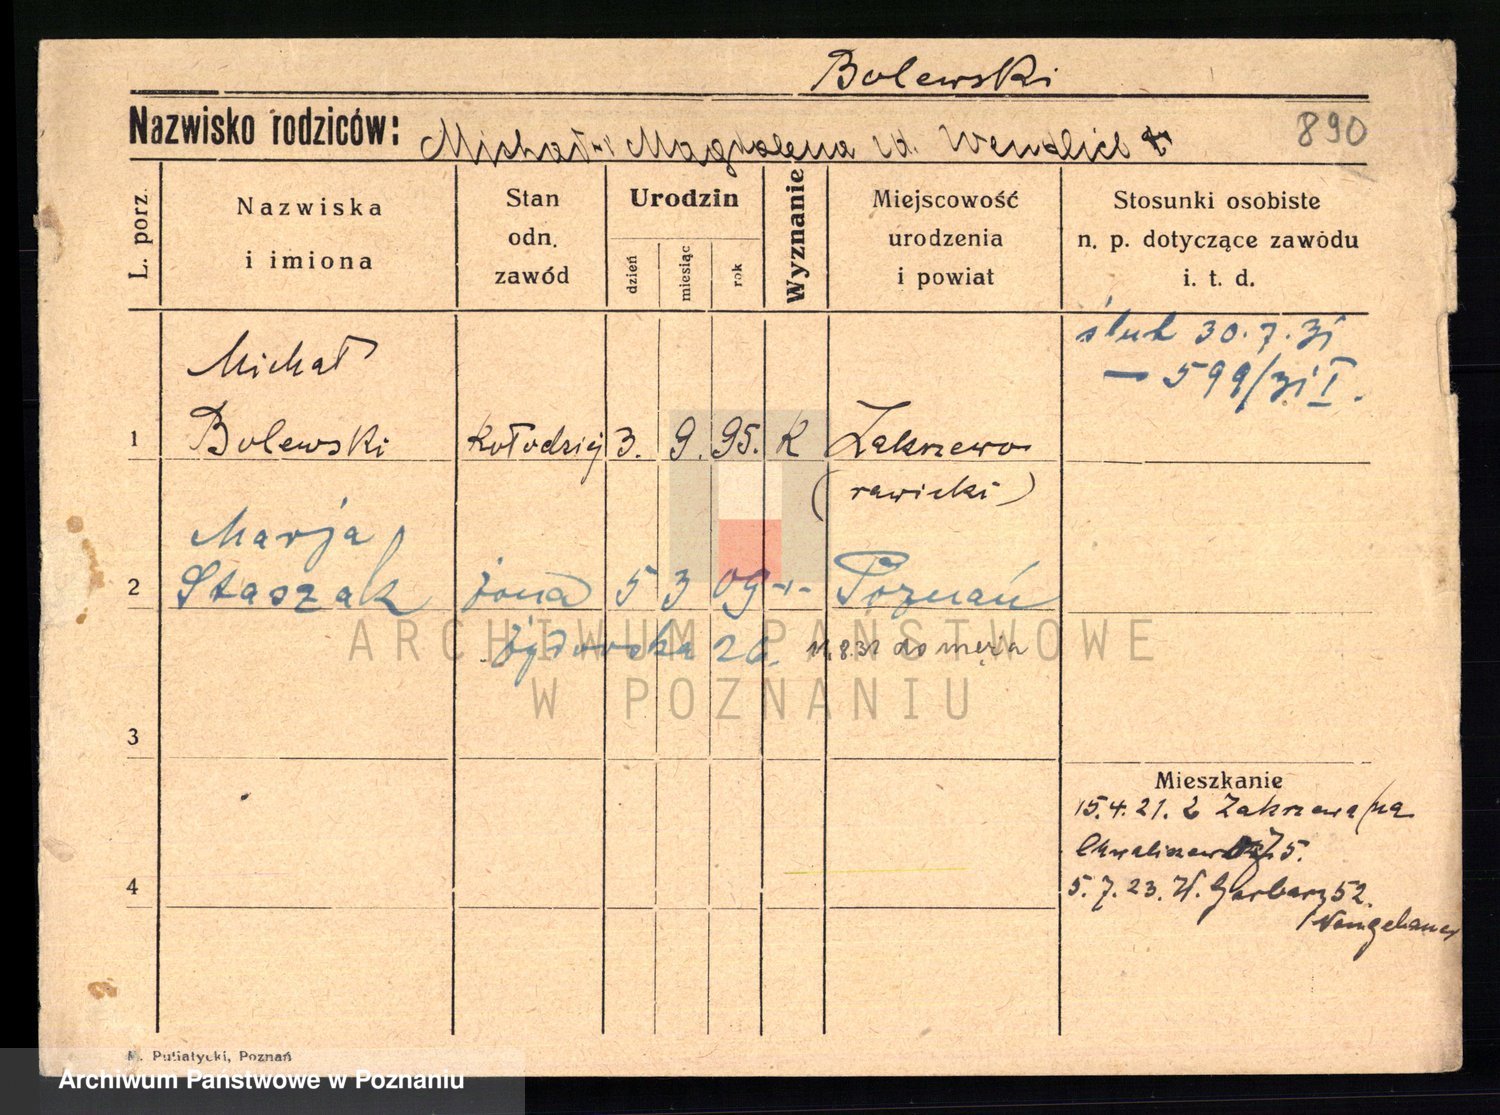 Bolewski
Nazwisko rodziców: Michał i Magdalena Wendlich
890
L. porz.
Nazwiska
i imiona
Stan
odn.
zawód
Urodzin
dzień
miesiąc
rok
Wyznanie
Miejscowość
urodzenia
i powiat
Stosunki osobiste
n. p. dotyczące zawodu
i. t. d.
ślub 30.7.31
— 599/31 I.
Michał
1 Bolewski kołodziej 3. 9. 95. K Zakrzewo
(rawicki)
Marja
2 Staszak żona 5 3 09 -"- Poznań
Żydowska 26. 11.8.32 do męża
ARCHIWUM PAŃSTWOWE
W POZNANIU
3
Mieszkanie
15.4.21. z Zakrzewa
Chwaliszewo 75.
4
5.7.23. W. Garbary 52.
M. Putiatycki, Poznań
Archiwum Państwowe w Poznaniu